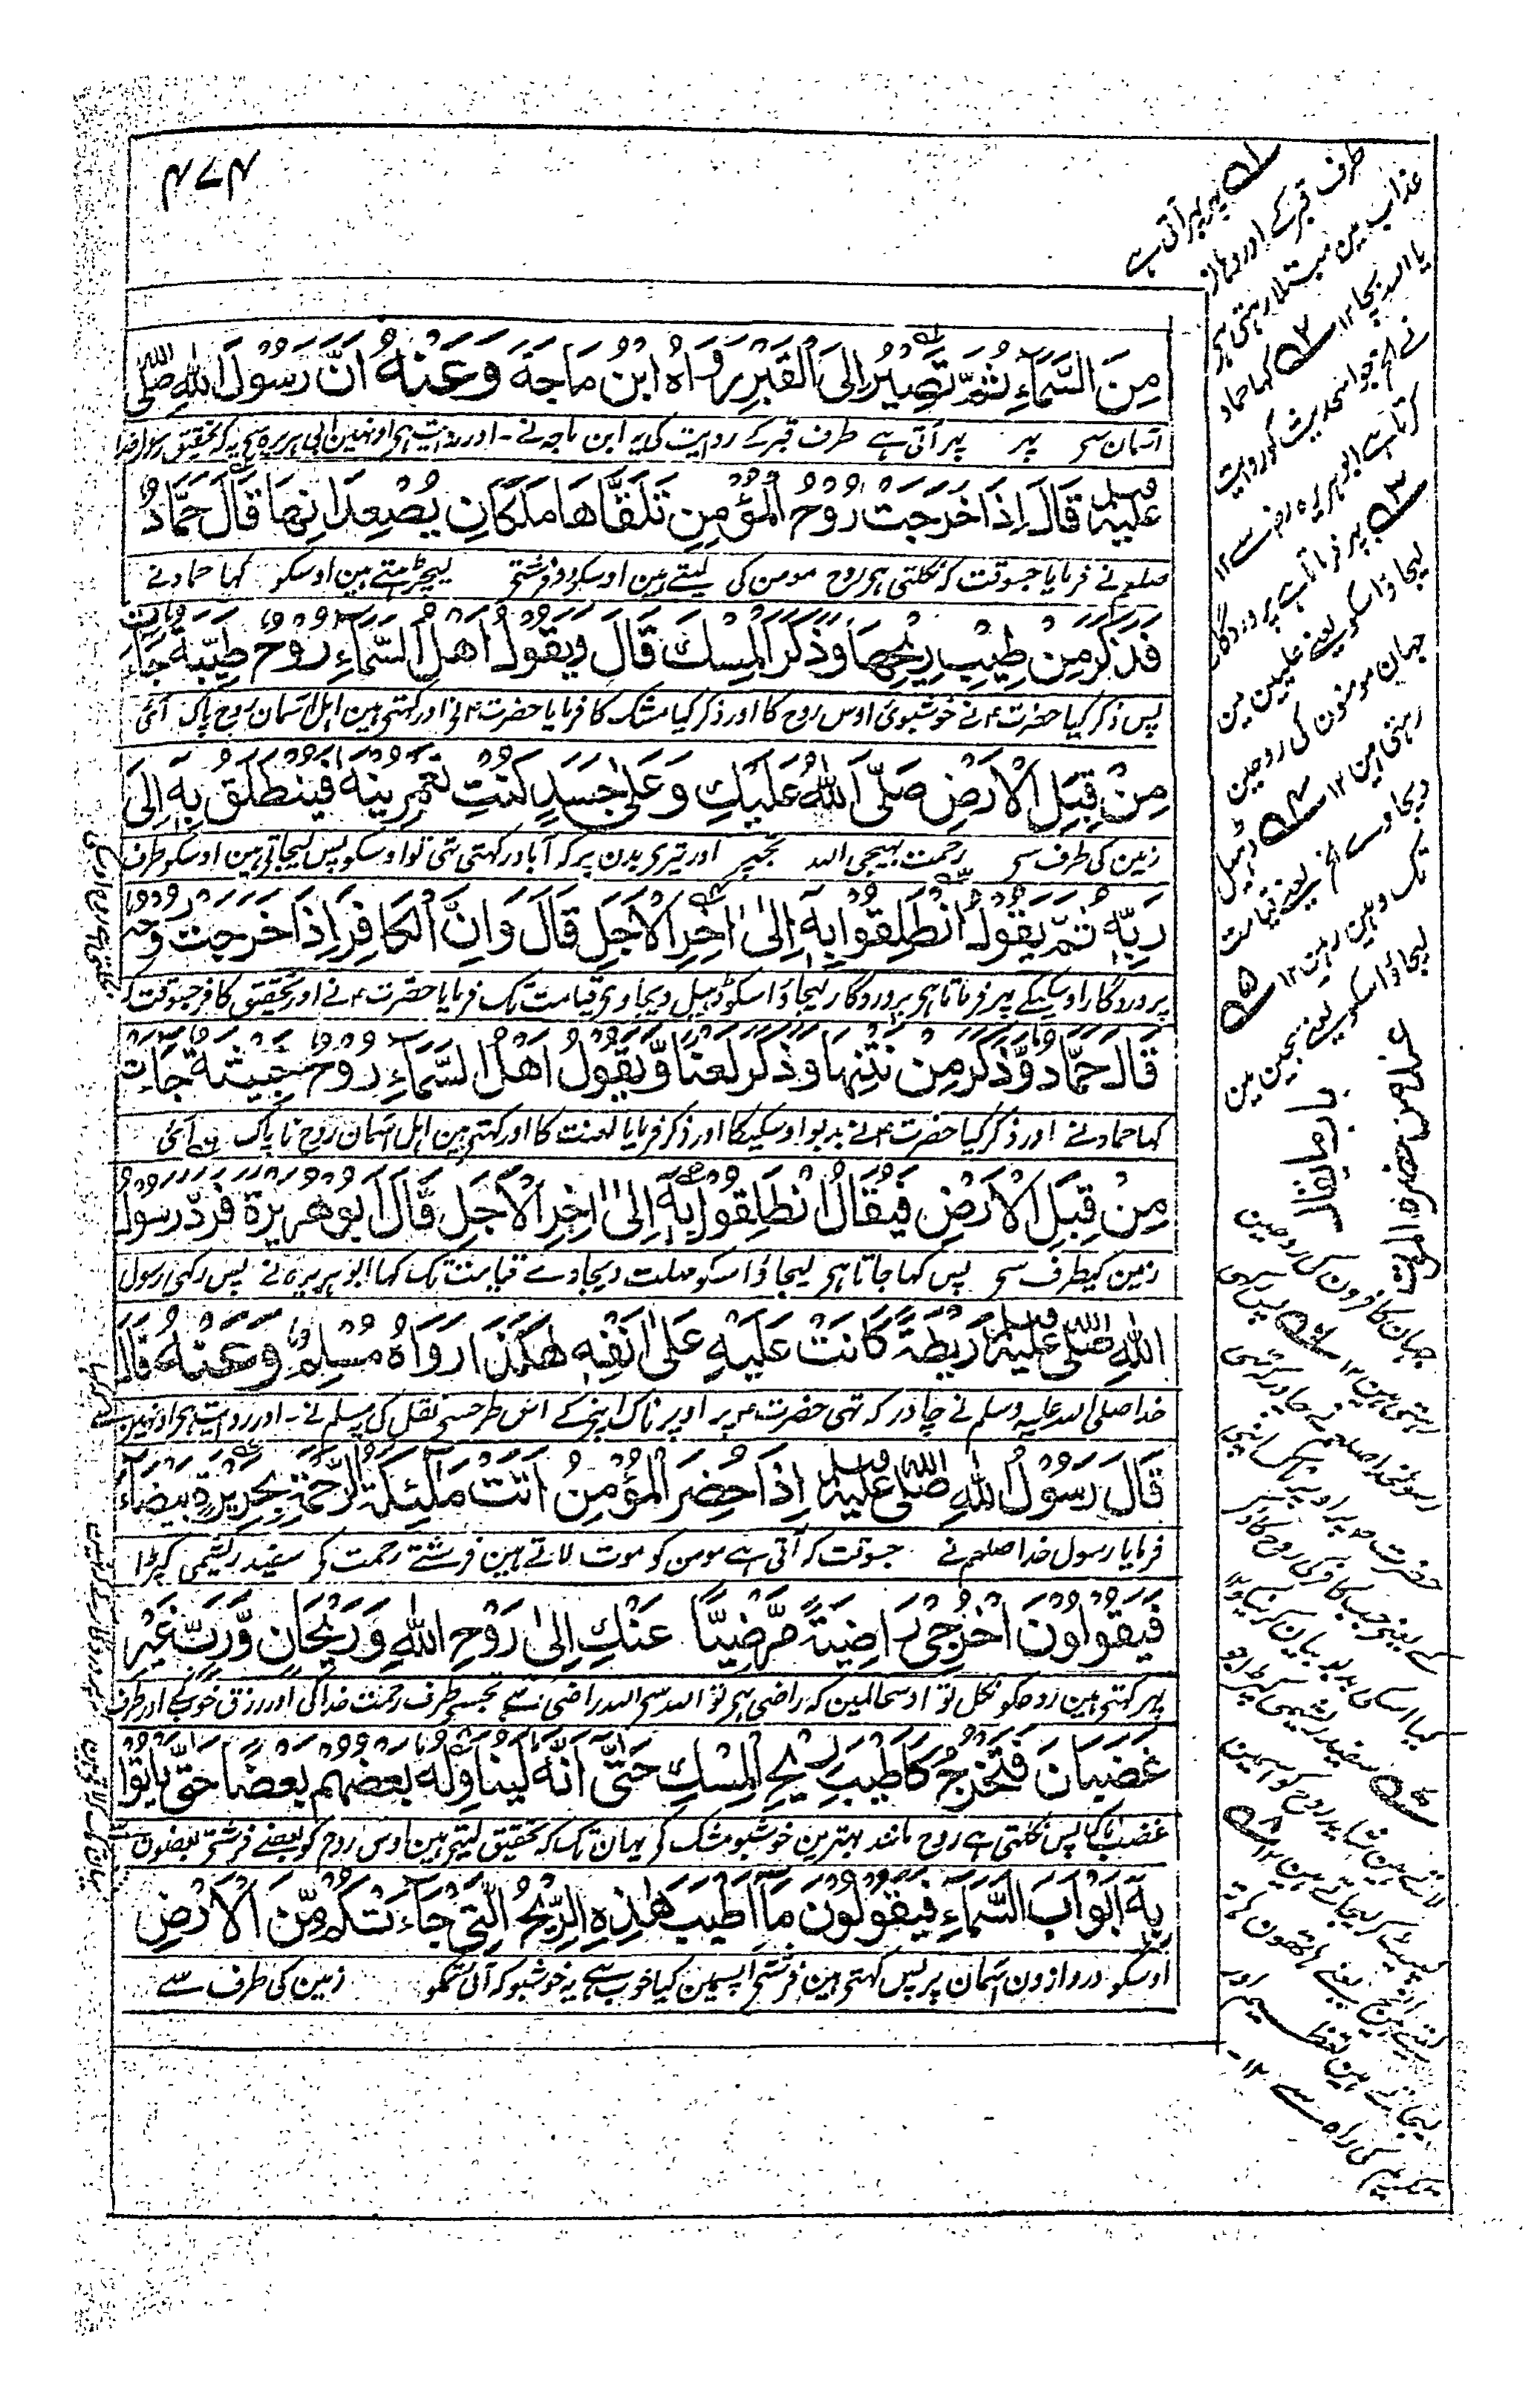 ۴۷۴
مِنَ السَّمَآءِ ثُمَّ تَصِيْرُ اِلَى الْقَبْرِ رَوَاهُ ابْنُ مَاجَةَ وَعَنْهُ اَنَّ رَسُوْلَ اللّٰهِ صَلَّى اللّٰه
آسمان سے پہر پہر آتی ہے طرف قبر کے روایت کی یہ ابن ماجہ نے ۔ اور روایت ہی اونہین ابی ہریرہ سے یہ کہ تحقیق رسولخدا
عَلَيْهِ وَسلم قَالَ اِذَا خَرَجَتْ رُوْحُ الْمُؤْمِنِ تَلَقَّاهَا مَلَكَانِ يُصْعِدَانِهَا قَالَ حَمَّادٌ
صلعم نے فرمایا جسوقت کہ نکلتی ہی روح مومن کی لیتے ہین اوسکو دو فرشتے لیچڑھتے ہین اوسکو کہا حماد نے
فَذَكَرَ مِنْ طِيْبِ رِيْحِهَا وَذَكَرَ الْمِسْكَ قَالَ وَيَقُوْلُ اَهْلُ السَّمَآءِ رُوْحٌ طَيِّبَةٌ جَآءَتْ
پس ذکر کیا حضرت ؐ نے خوشبوئی اوس روح کا اور ذکر کیا مشک کا فرمایا حضرت ؐ نے اور کہتی ہین اہل آسمان روح پاک آئی
مِنْ قِبَلِ الْاَرْضِ صَلَّى اللّٰهُ عَلَيْكِ وَعَلٰى جَسَدٍ كُنْتِ تَعْمُرِيْنَهُ فَيُنْطَلَقُ بِهٖ اِلٰى
زمین کی طرف سے رحمت بہیجی اللہ تجہپر اور تیری بدن پر کہ آباد رکہتی تہی تو اوسکو پس لیجاتی ہین اوسکو طرف
رَبِّهٖ ثُمَّ يَقُوْلُ انْطَلِقُوْا بِهٖ اِلٰى اٰخِرِ الْاَجَلِ قَالَ وَاِنَّ الْكَافِرَ اِذَا خَرَجَتْ رُوْحُه
پروردگار اوسکیکے پہر فرماتا ہی پروردگار لیجاؤ اسکو ڈہیل دیجاوی قیامت تک فرمایا حضرت ؐ نے اور تحقیق کافر جسوقت کہ
قَالَ حَمَّادٌ وَّذَكَرَ مِنْ نَتْنِهَا وَذَكَرَ لَعْنًا وَّيَقُوْلُ اَهْلُ السَّمَآءِ رُوْحٌ خَبِيْثَةٌ جَآءَتْ
کہا حماد نے اور ذکر کیا حضرت ؐ نے بدبو اوسکیکا اور ذکر فرمایا لعنت کا اور کہتی ہین اہل آسمان روح ناپاک ہے آئی
مِنْ قِبَلِ الْاَرْضِ فَيُقَالُ انْطَلِقُوْا بِهٖ اِلٰى اٰخِرِ الْاَجَلِ قَالَ اَبُوْ هُرَيْرَةَ فَرَدَّ رَسُوْلُ
زمین کیطرف سے پس کہا جاتا ہی لیجاؤ اسکو مہلت دیجاوے قیامت تک کہا ابوہریرہ نے پس رکہی رسول
اللّٰهِ صلى اللّٰه عليه وسلم رَيْطَةً كَانَتْ عَلَيْهِ عَلٰى اَنْفِهٖ هٰكَذَا رَوَاهُ مُسْلِمٌ وَعَنْهُ قَالَ
خدا صلی اللہ علیہ وسلم نے چادر کہ تہی حضرت ؐ پر اوپر ناک اپنی کے اس طرحسے نقل کی مسلم نے ۔ اور روایت ہی اونہین سے
قَالَ رَسُوْلُ اللّٰهِ صلى اللّٰه عليه وسلم اِذَا حُضِرَ الْمُؤْمِنُ اَتَتْ مَلٰئِكَةُ الرَّحْمَةِ بِحَرِيْرَةٍ بَيْضَآءَ
فرمایا رسول خدا صلعم نے جسوقت کہ آتی ہے مومن کو موت لاتے ہین فرشتے رحمت کی سفید ریشمی کپڑا
فَيَقُوْلُوْنَ اخْرُجِيْ رَاضِيَةً مَّرْضِيًّا عَنْكِ اِلٰى رَوْحِ اللّٰهِ وَرَيْحَانٍ وَّرَبٍّ غَيْرِ
پہر کہتی ہین روحکو نکل تو اوسحالمین کہ راضی ہی تو اللہ سے اللہ راضی ہے تجسے طرف رحمت خدا کی اور رزق خوب کے اور طرف
غَضْبَانَ فَتَخْرُجُ كَاَطْيَبِ رِيْحِ الْمِسْكِ حَتّٰى اَنَّهُ لَيُنَاوِلُهُ بَعْضُهُمْ بَعْضًا حَتّٰى يَأْتُوْا
غضبناک پس نکلتی ہے روح مانند بہترین خوشبو مشک کی یہان تک کہ تحقیق لیتی ہین اوس روح کو بعضے فرشتے بعضون سے
بِهٖ اَبْوَابَ السَّمَآءِ فَيَقُوْلُوْنَ مَآ اَطْيَبَ هٰذِهِ الرِّيْحَ الَّتِيْ جَآءَتْكُمْ مِّنَ الْاَرْضِ
اوسکو دروازون آسمان پر پس کہتی ہین فرشتے آپسمین کیا خوب ہے یہ خوشبو کہ آئی تمکو زمین کی طرف سے
۱ پہر پہر آتی ہے
طرف قبر کے اور وہان
عذاب مین مبتلا رہتی ہی
یا اللہ بچا ۱۲ ۲ کہا حماد
نے الخ جو اسحدیث کو روایت
کرتا ہے ابوہریرہ رض سے ۱۲
۳ پہر فرماتا ہے پروردگار
لیجاؤ اسکو یعنے علیین مین
جہان مومنون کی روحین
رہتی ہین ۱۲ ۴ ڈہیل
دیجاوے الخ یعنے قیامت
تک وہین رہین ۱۲ ۵
لیجاؤ اسکو یعنے سجین مین
باب ما یقال
عند من حضرہ الموت
جہان کافرون کی روحین
رہتی ہین ۱۲ ۶ پس رکہی
رسولخدا صلعم نے چادر کہ تہی
حضرت ؐ پر اوپر ناک اپنی
کے یعنے جب کافر کی روح کا ذکر
کیا اسکی بدبو بیان کرنیکو ۱۲
۷ سفید ریشمی کپڑا جو
لاتے ہین شاید روح کو اسمین
لپیٹ کر لیجاتے ہین ۱۲ ۸
لیتے ہین الخ یعنے ہاتھون ہاتھ
لیجاتے ہین تعظیم اور
تکریم کی راہ سے ۱۲